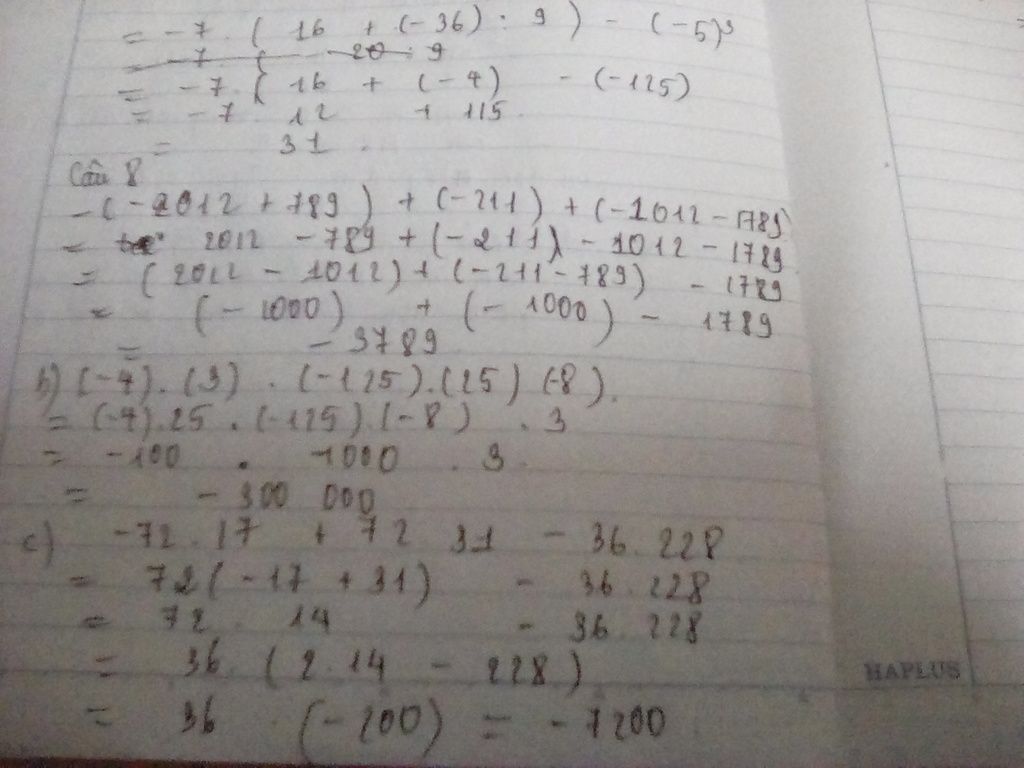 = -7 . ( 16 + (-36) : 9 ) - (-5)³
= -7 ( -20 : 9
= -7 . ( 16 + (-4) - (-125)
= -7 . 12 + 115
= 31 .
Câu 8
- ( -2012 + 789 ) + (-211) + (-1012 - 1789)
= 2012 - 789 + (-211) - 1012 - 1789
= (2012 - 1012) + (-211 - 789) - 1789
= (-1000) + (-1000) - 1789
= -3789
b) (-4) . (3) . (-125) . (25) (-8).
= (-4) . 25 . (-125) . (-8) . 3
= -100 . 1000 . 3
= -300 000
c) -72 . 17 + 72 31 - 36 . 228
= 72 ( -17 + 31 ) - 36 . 228
= 72 . 14 - 36 . 228
= 36 . ( 2 . 14 - 228 )
HAPLUS
= 36 . (-200) = -7200